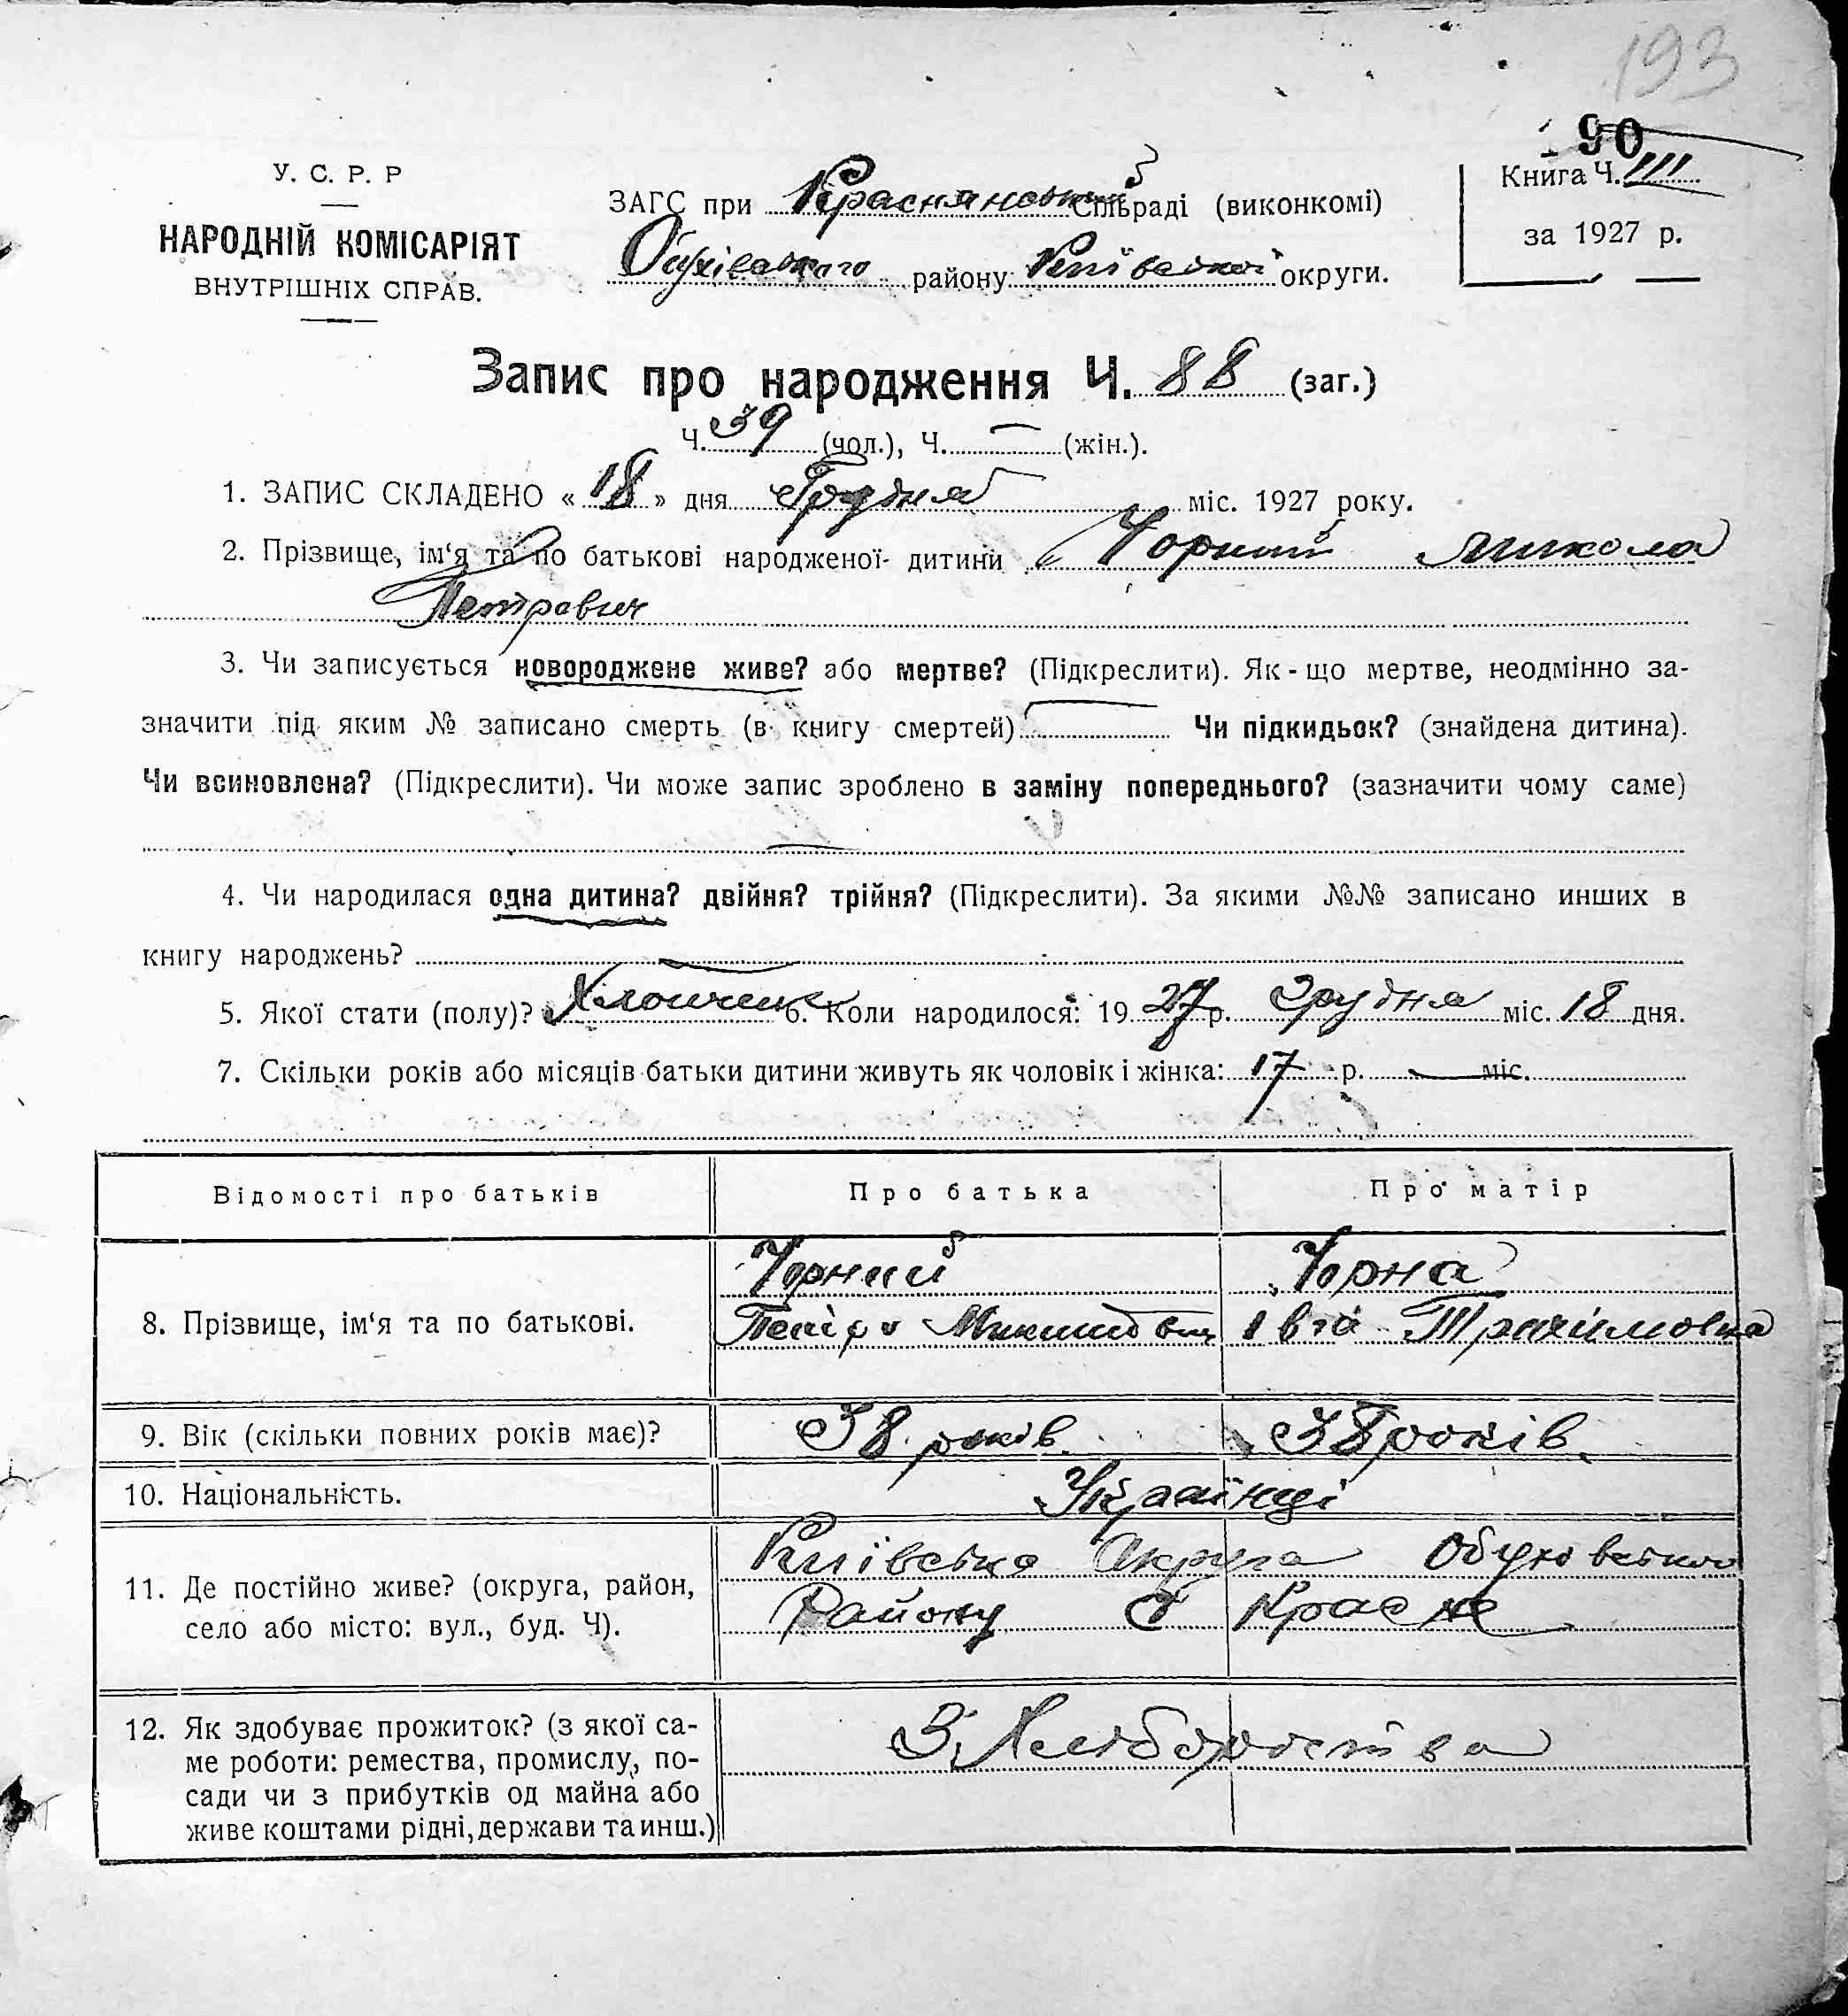 193
190
У. С. Р. Р
НАРОДНІЙ КОМІСАРІЯТ
ВНУТРІШНІХ СПРАВ.
ЗАГС при Краснянській Сільраді (виконкомі)
Обухівського району Київської округи.
Книга Ч. III
за 1927 р.
Запис про народження Ч. 88 (заг.)
Ч. 39 (чол.), Ч. — (жін.).
1. ЗАПИС СКЛАДЕНО « 18 » дня Грудня міс. 1927 року.
2. Прізвище, ім‘я та по батькові народженої дитини Чорний Микола
Петрович
3. Чи записується новороджене живе? або мертве? (Підкреслити). Як-що мертве, неодмінно за-
значити під яким № записано смерть (в книгу смертей) — Чи підкидьок? (знайдена дитина).
Чи всиновлена? (Підкреслити). Чи може запис зроблено в заміну попереднього? (зазначити чому саме)
—
4. Чи народилася одна дитина? двійня? трійня? (Підкреслити). За якими №№ записано инших в
книгу народжень? —
5. Якої стати (полу)? Хлопчик 6. Коли народилося: 19 27 р. Грудня міс. 18 дня.
7. Скільки років або місяців батьки дитини живуть як чоловік і жінка: 17 р. — міс.
Відомості про батьків Про батька Про матір
8. Прізвище, ім‘я та по батькові.
Чорний Чорна
Петро Івга Трахимовна
9. Вік (скільки повних років має)? 38 років 38 років
10. Національність. Українці
11. Де постійно живе? (округа, район,
село або місто: вул., буд. Ч).
Київська Округа Обухівського
Району С Красне
12. Як здобуває прожиток? (з якої са-
ме роботи: ремества, промислу, по-
сади чи з прибутків од майна або
живе коштами рідні, держави та инш.)
З Хліборобства